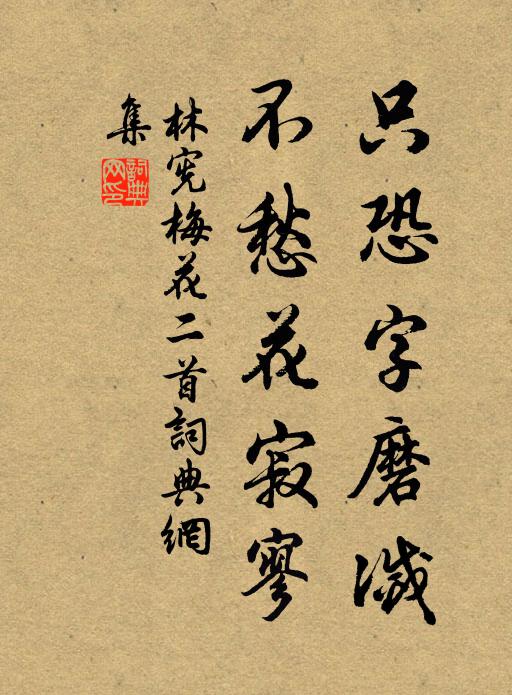 只恐字磨滅
不愁花寂寥
林憲梅花二首詞典網
集
詞典網印